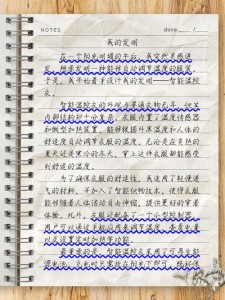 NOTES
date
我的发明
在一个阳光明媚的午后，我突然灵感迸
发，想要发明一种能够自动调节温度的衣服。
于是，我开始着手设计我的发明——智能温控
衣。
智能温控衣的外观与普通衣物无异，但其
内部结构却十分复杂。衣服内置了温度传感器
和微型加热装置，能够根据外界温度和人体的
舒适度自动调节衣服的温度。无论是在炎热的
夏天还是寒冷的冬天，穿上这件衣服都能感受
到舒适的温度。
为了确保衣服的舒适性，我选用了轻便透
气的材料，并加入了智能织物技术，使得衣服
能够随着人体活动自由伸缩，提供更好的穿着
体验。此外，衣服还配备了一个小型控制器，
用户可以通过手机应用来调节温度、查看电量
以及设置定时加热等功能。
最重要的是，智能温控衣采用了可再生能